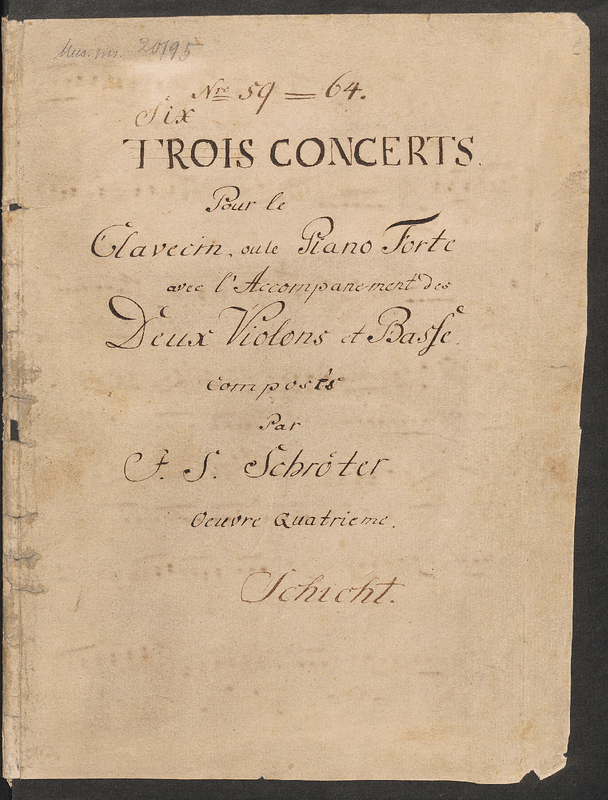 Mus. ms. 20195
Nro 59 = 64.
Six
TROIS CONCERTS.
Pour le
Clavecin, ou le Piano Forte
avec l'Accompanement des
Deux Violons et Basse.
composés
Par
J. S. Schröter
Oeuvre Quatrieme.
Schicht.